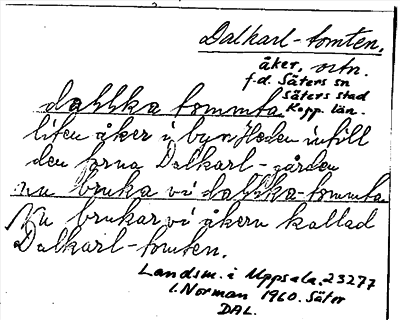 Dalkarl-tomten,
åker, ortn.
f.d. Säters sn
Säters stad
Kopp. län.
daḷḷka tommta
liten åker i byn Heden intill
den forna Dalkarl-gården
nu bruka vi daḷḷka-tommta
Nu brukar vi åkern kallad
Dalkarl-tomten.
Landsm. i Uppsala. 23277
I. Norman 1960. Säter
DAL.